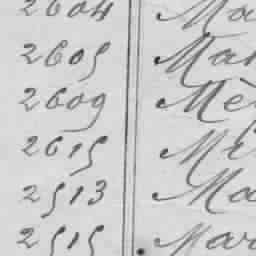 2604 Ma
2605 Mar
2609 Mè
2615 M
2513 Ma
2515 Mar